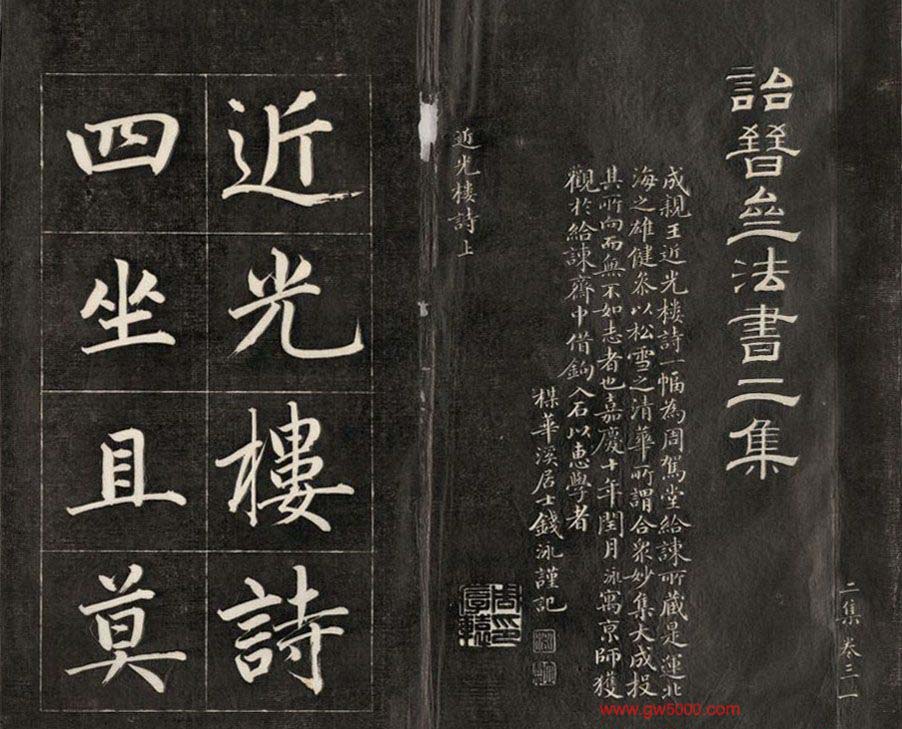 二集 卷三 一
詒晉亝法書二集
成親王近光樓詩一幅為周駕堂給諫所藏是運北
海之雄健叅以松雪之清華所謂合眾妙集大成投
其所向而無不如志者也嘉慶十年閏月泳寓京師獲
觀於給諫齋中借鉤入石以惠學者
楳華溪居士錢泳謹記
周印厚轅
近光樓詩上
近光樓詩
四坐且莫
www.gw5000.com